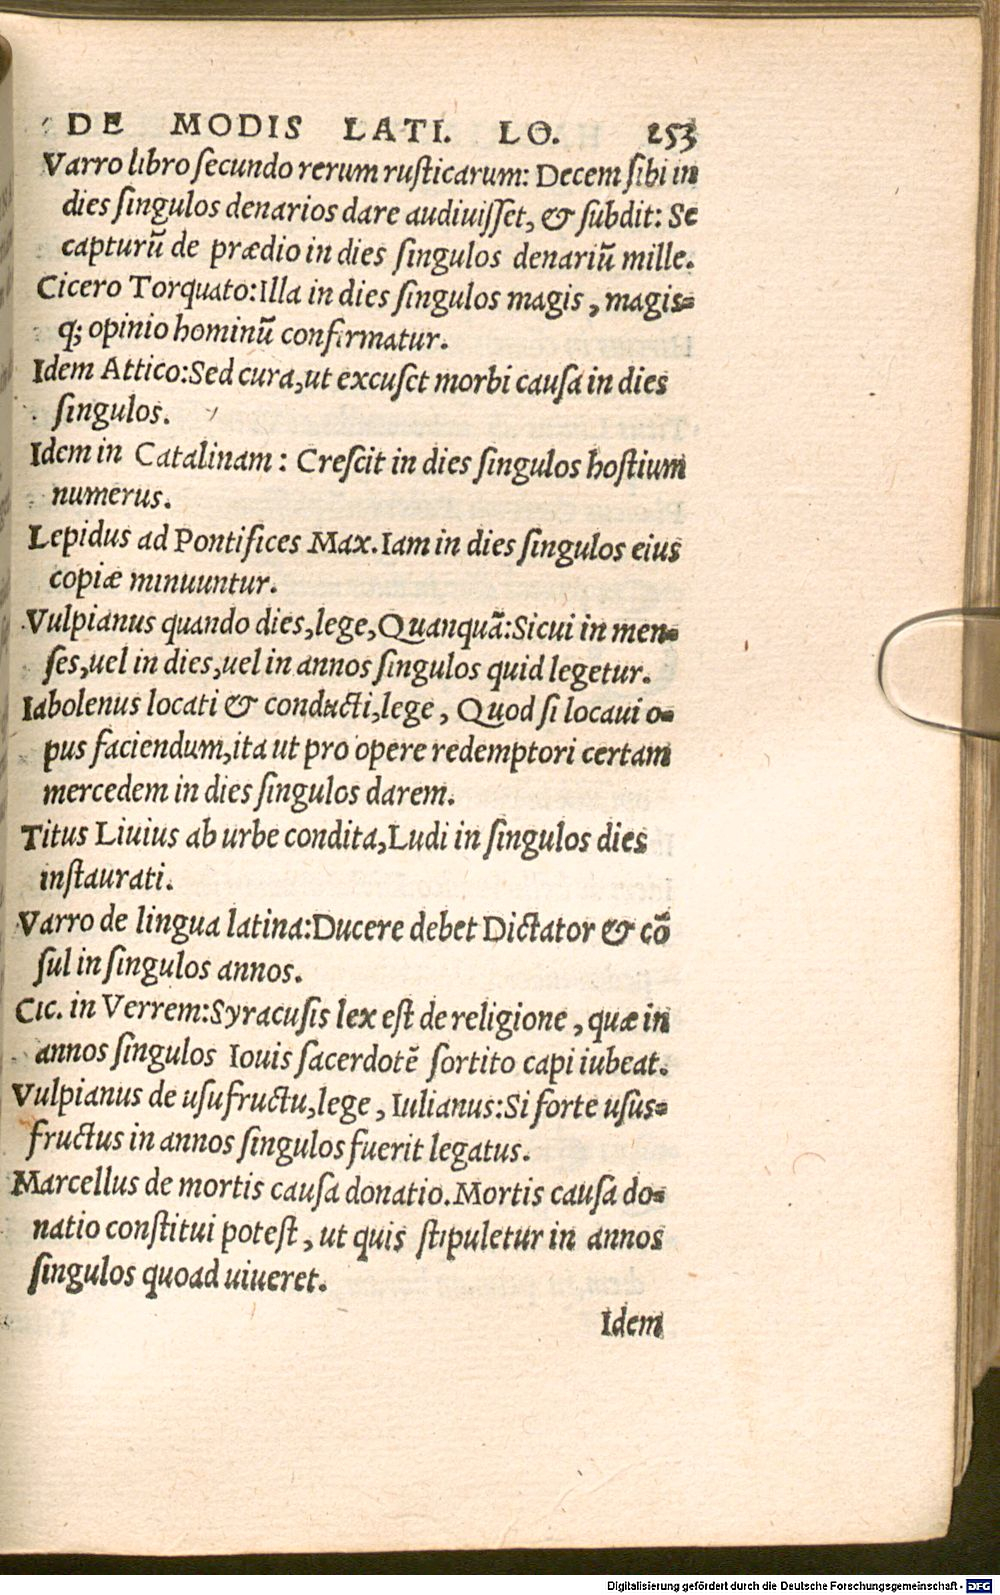 DE MODIS LATI. LO. 253
Varro libro ſecundo rerum ruſticarum: Decem ſibi in
dies ſingulos denarios dare audiuiſſet, & ſubdit: Se
capturũ de prædio in dies ſingulos denariũ mille.
Cicero Torquato: Illa in dies ſingulos magis, magis-
q; opinio hominũ confirmatur.
Idem Attico: Sed cura, ut excuſet morbi cauſa in dies
ſingulos.
Idem in Catalinam: Creſcit in dies ſingulos hoſtium
numerus.
Lepidus ad Pontifices Max. Iam in dies ſingulos eius
copiæ minuuntur.
Vulpianus quando dies, lege, Quanquã: Sicui in men-
ſes, uel in dies, uel in annos ſingulos quid legetur.
Iabolenus locati & conducti, lege, Quod ſi locaui o-
pus faciendum, ita ut pro opere redemptori certam
mercedem in dies ſingulos darem.
Titus Liuius ab urbe condita, Ludi in ſingulos dies
inſtaurati.
Varro de lingua latina: Ducere debet Dictator & cõ
ſul in ſingulos annos.
Cic. in Verrem: Syracuſis lex eſt de religione, quæ in
annos ſingulos Iouis ſacerdotẽ ſortito capi iubeat.
Vulpianus de uſufructu, lege, Iulianus: Si forte uſus-
fructus in annos ſingulos fuerit legatus.
Marcellus de mortis cauſa donatio. Mortis cauſa do-
natio conſtitui poteſt, ut quis ſtipuletur in annos
ſingulos quoad uiueret.
Idem
Digitalisierung gefördert durch die Deutsche Forschungsgemeinschaft - DFG